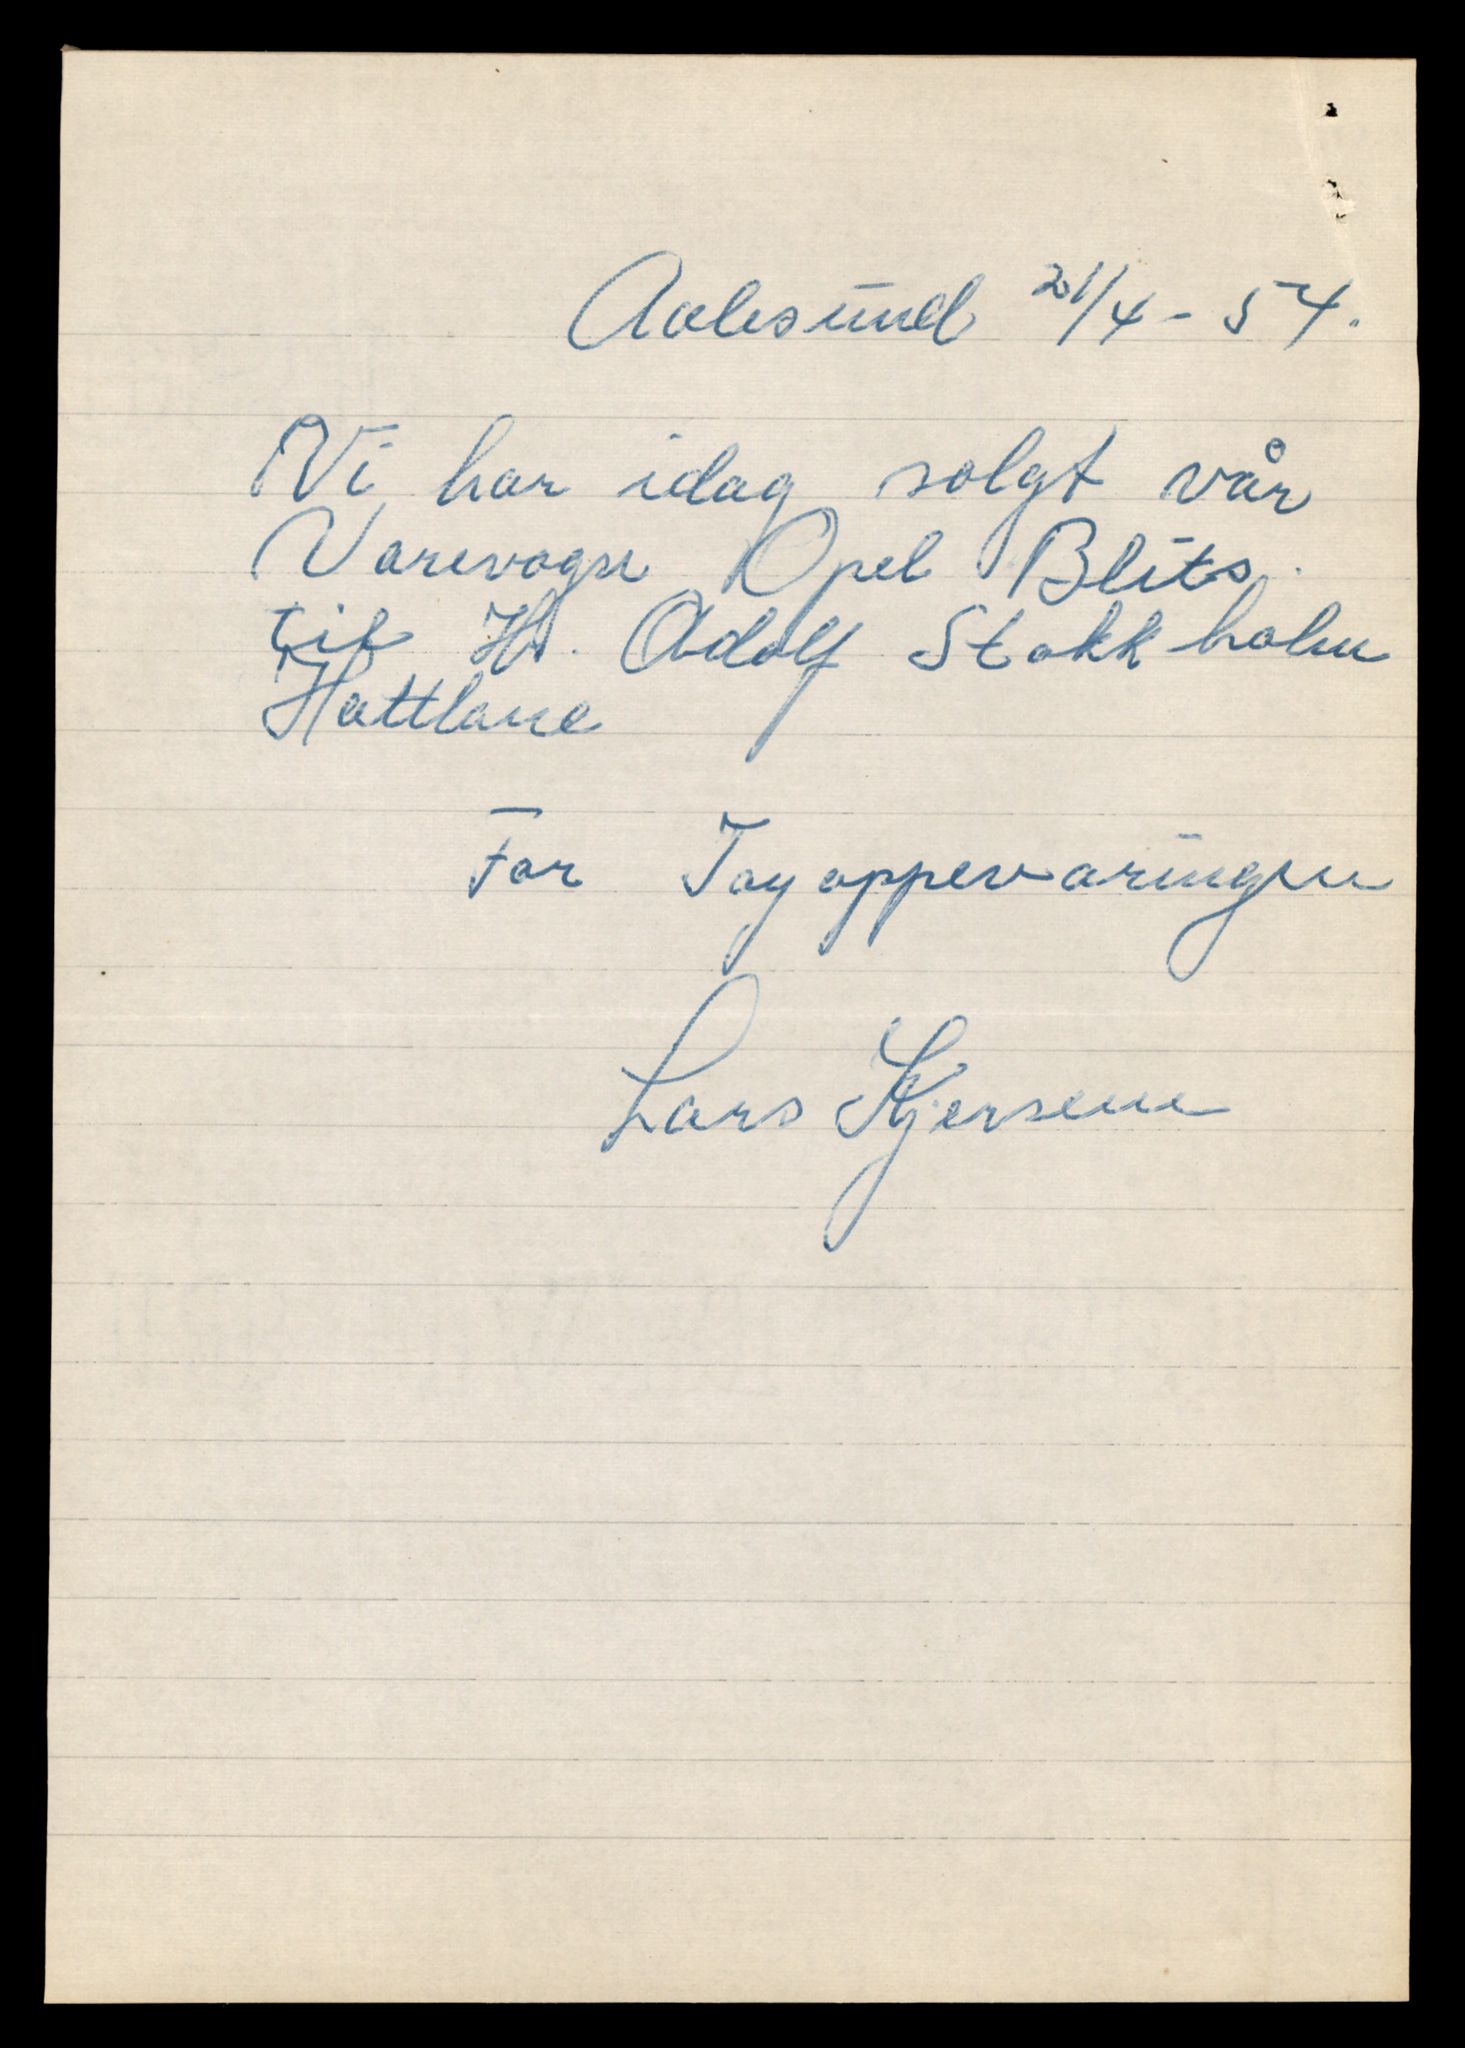 Aalesund 20/4-54.
Vi har idag solgt vår
Varevogn Opel Blits.
til Hr. Adolf Stokkholm
Hattlane
For Tøyoppevaringen
Lars